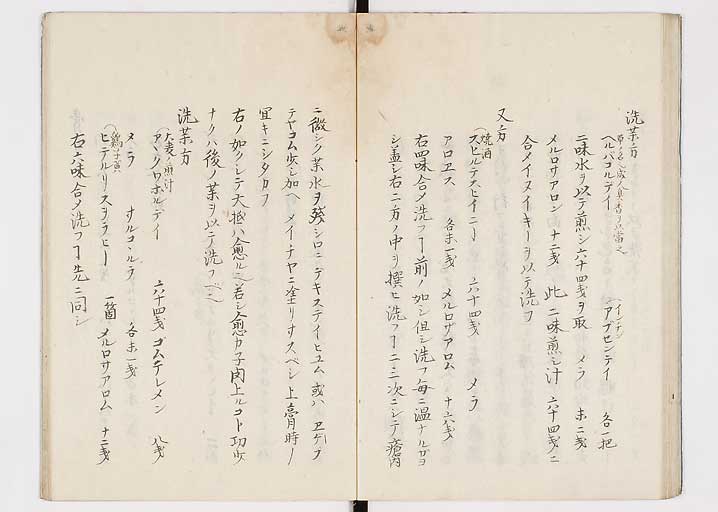 洗薬方
ヘルバコルデイ
アブセンテイ 各一把
二味水ヲ以テ煎シ六十四戔ヲ取 メラ 末二戔
メルロサアロン 十二戔 此二味煎シ汁六十四戔ニ
合メイヌイキーヲ以テ洗フ
又方
焼酒
スピルテスヒイニー 六十四戔 メラ
アロヱス 各末一戔 メルロザアロム 十六戔
右四味合メ洗フ丁前ノ如シ但シ洗フ毎ニ温ナルカヨ
シ盖シ右二方ノ中ヲ撰ヒ洗フ丁二三次ニシテ瘡内
ニ微シク薬水ヲ残シロニテキステイヒユム或ハヱヂフ
テヤコム少シ加ヘメイチヤニ塗リ
宜キニシタカフ
右ノ如クシテ大抵ハ愈ル也若シ愈カ子肉上ルコト功少
ナクハ後ノ薬ヲ以テ洗フヘシ
洗薬方
大麦ノ煎汁
アヽクワホルデイ 六十四戔 ゴムテレメン 八戔
メラ サルコヽルラ 各末一戔
鶏子黄
ヒテルリスヲラヒー 一箇 メルロサアロム 十二戔
右六味合メ洗フ丁先ニ同シ